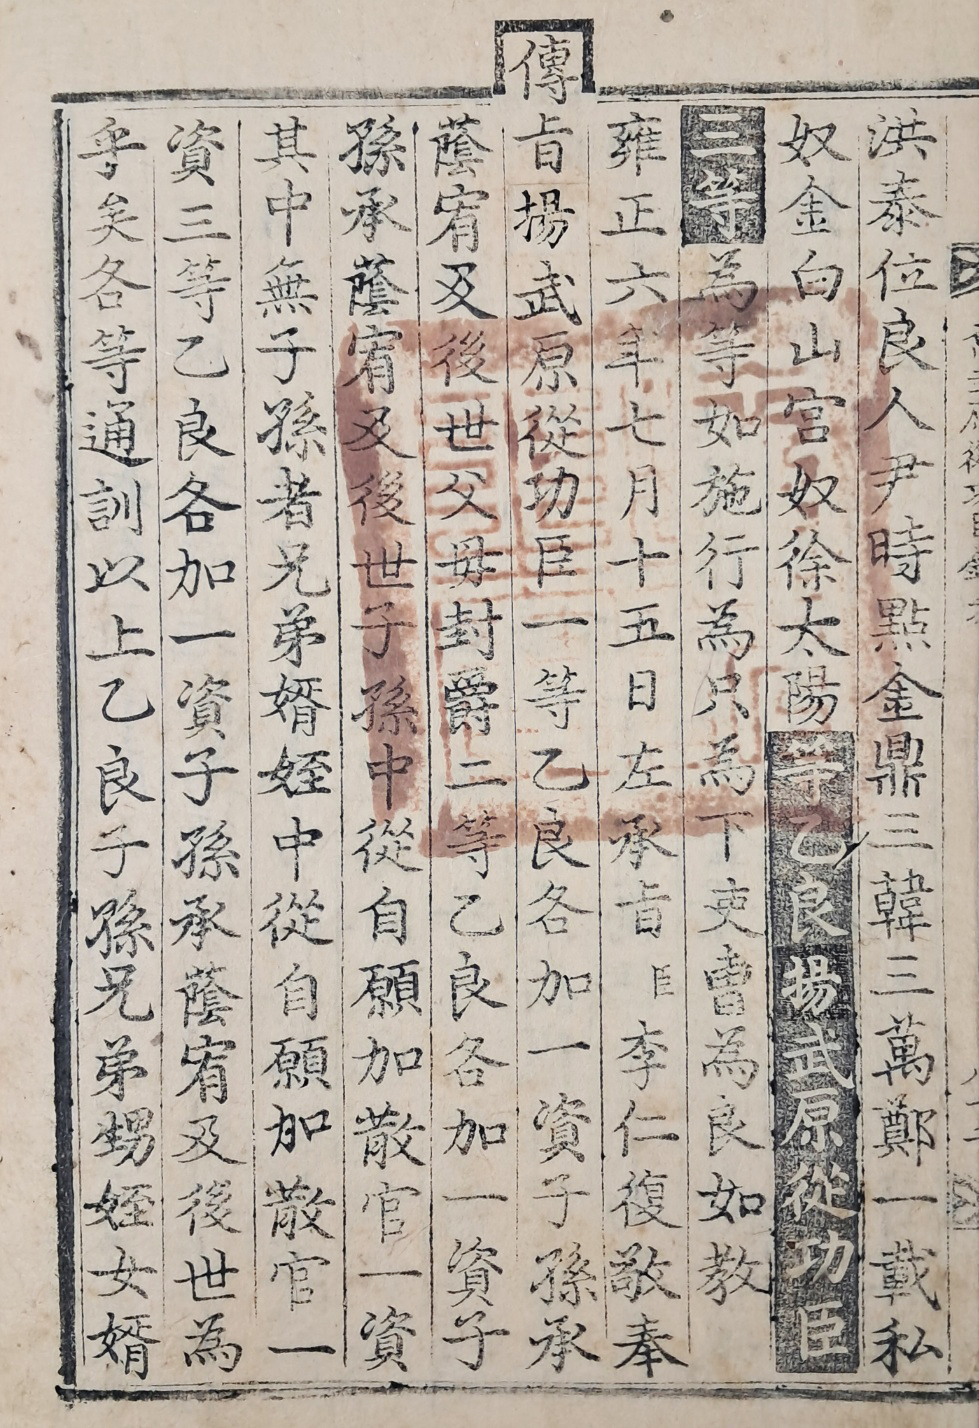 洪泰位良人尹時點金鼎三韓三萬鄭一載私
奴金白山宮奴徐太陽等乙良揚武原從功臣
三等為等如施行為只為下吏曹為良如教
雍正六年七月十五日左承旨臣李仁復敬奉
傳
旨揚武原從功臣一等乙良各加一資子孫承
蔭宥及後世父母封爵二等乙良各加一資子
孫承蔭宥及後世子孫中從自願加散官一資
其中無子孫者兄弟婿姪中從自願加散官一
資三等乙良各加一資子孫承蔭宥及後世為
乎矣各等通訓以上乙良子孫兄弟甥姪女婿